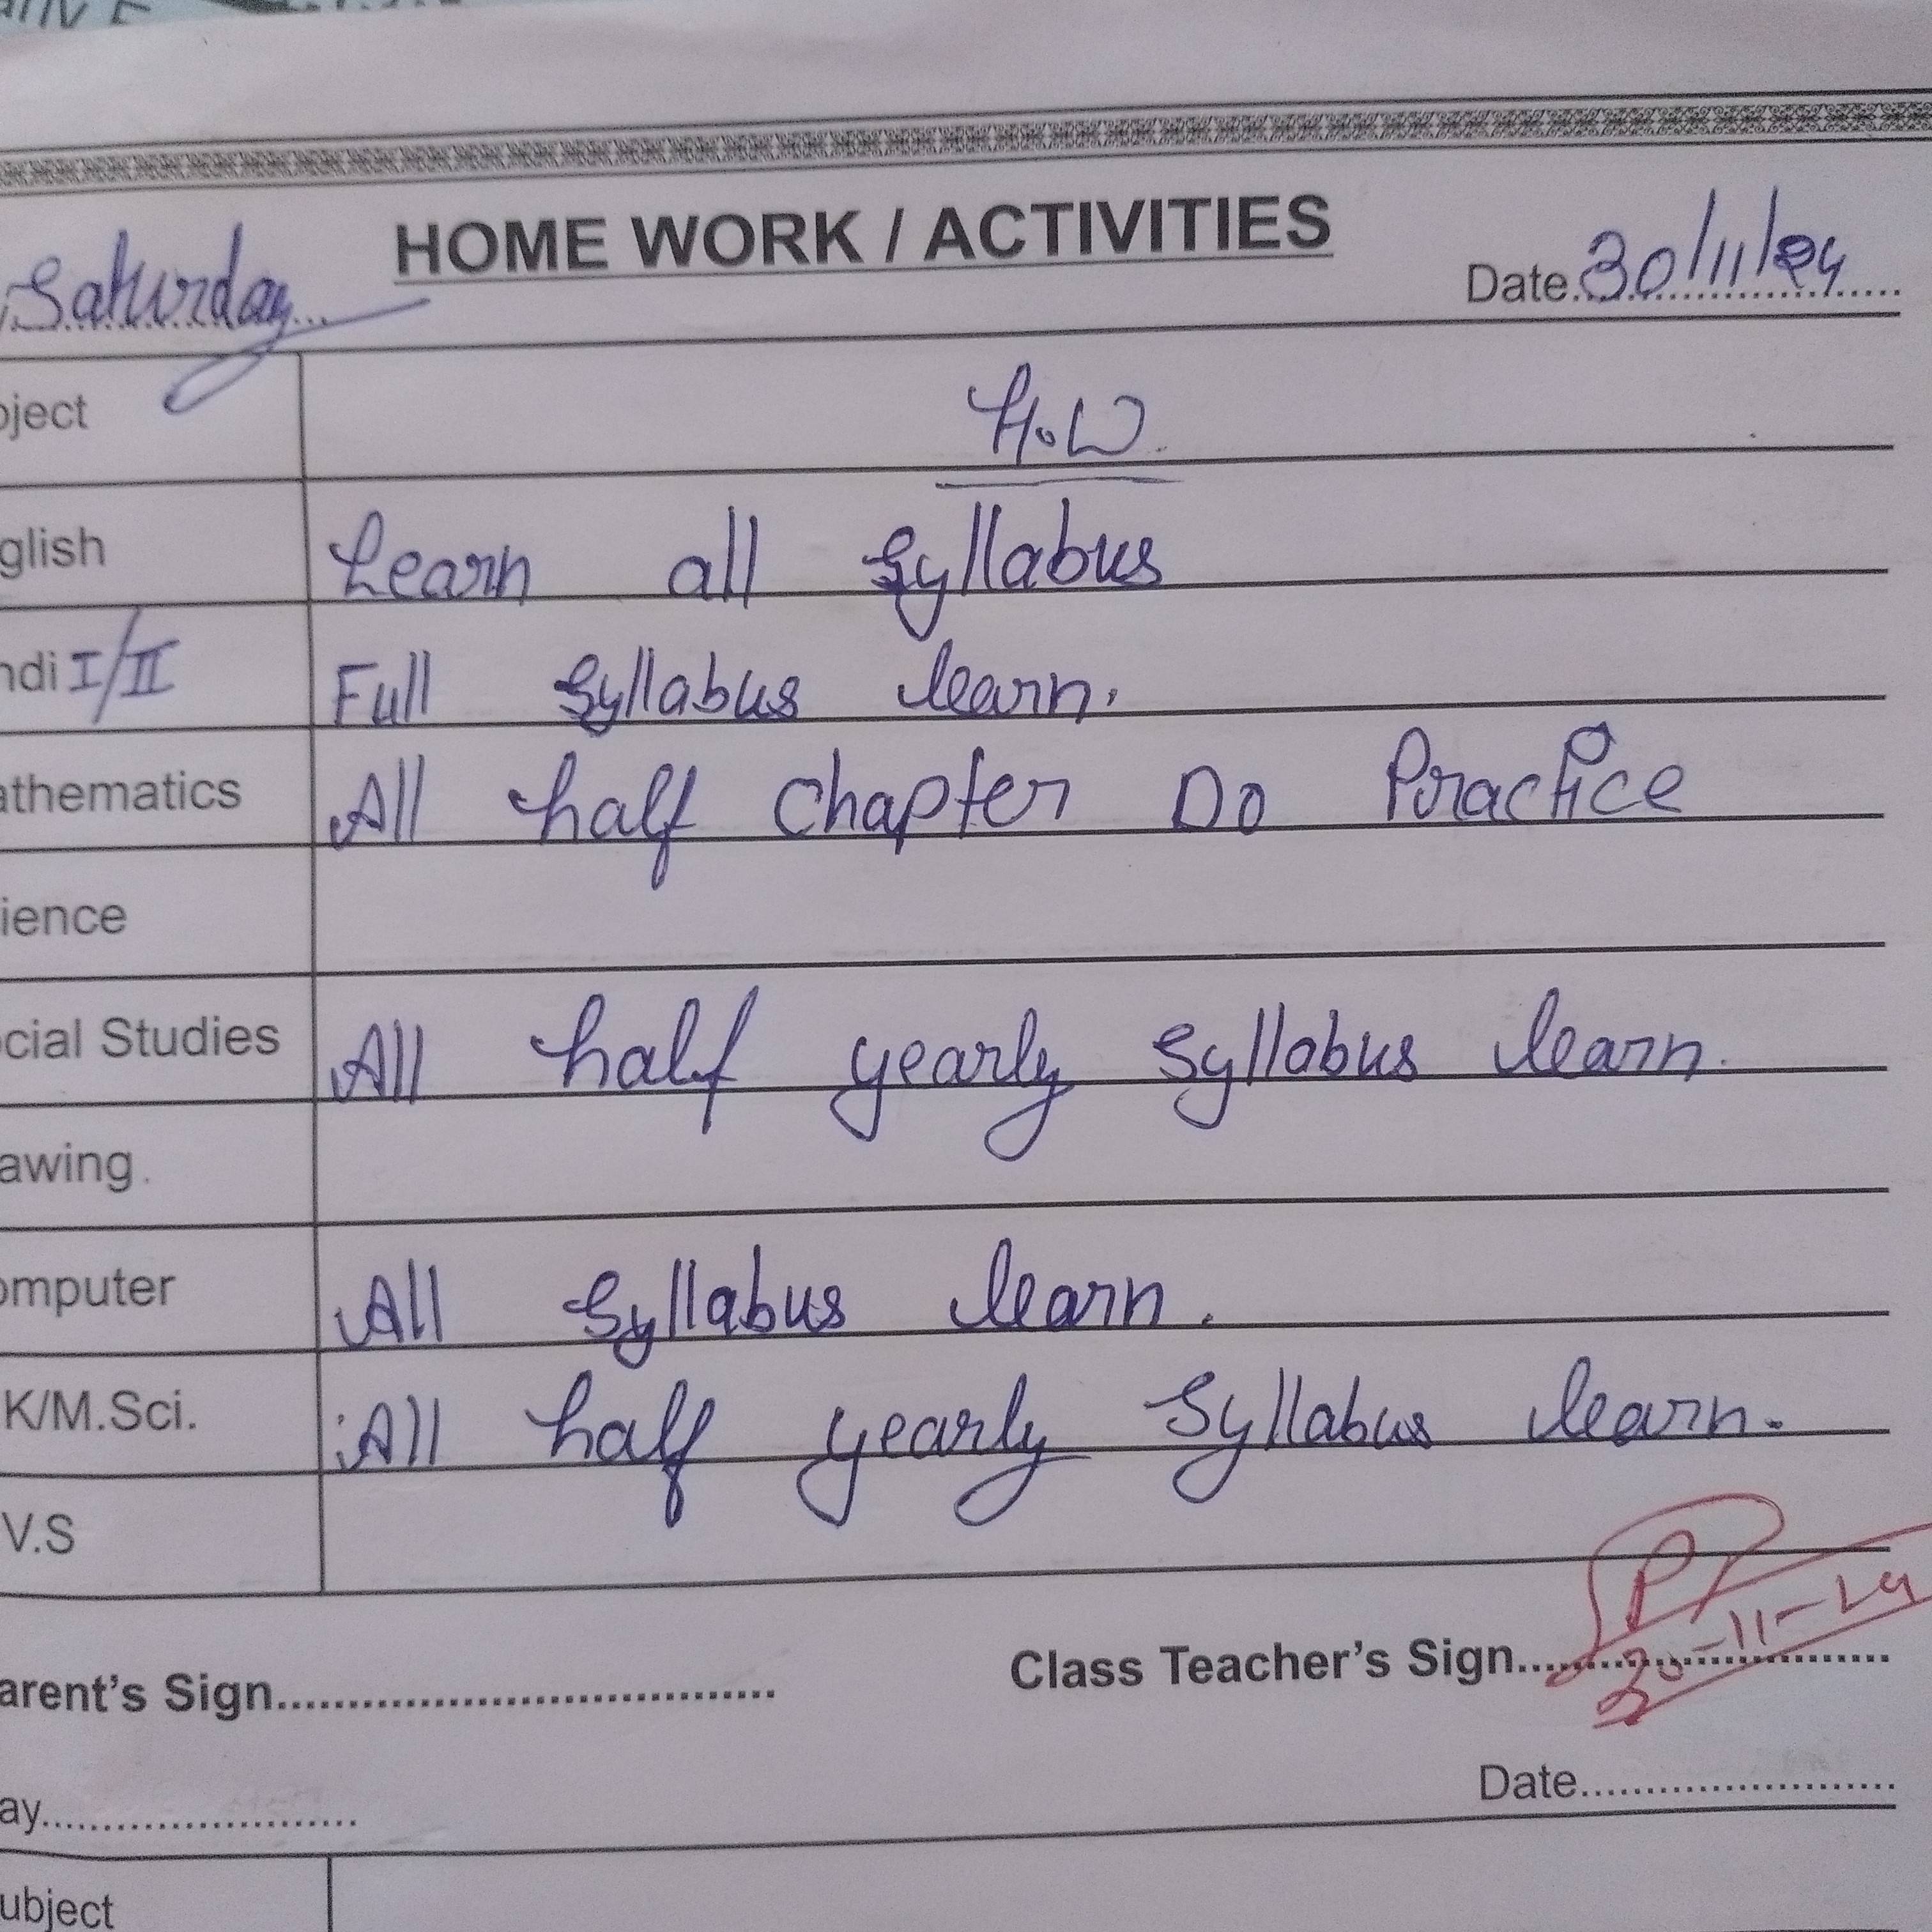 Saturday
HOME WORK / ACTIVITIES
Date 30/11/24
ject H.W.
glish Learn all Syllabus
ndi I/II Full Syllabus learn.
athematics All half Chapter Do Practice
ience
cial Studies All half yearly Syllabus learn.
awing.
omputer All Syllabus learn.
K/M.Sci. All half yearly Syllabus learn.
V.S
arent's Sign..................................
Class Teacher's Sign..................................
30-11-24
ay..........................
Date..........................
ubject